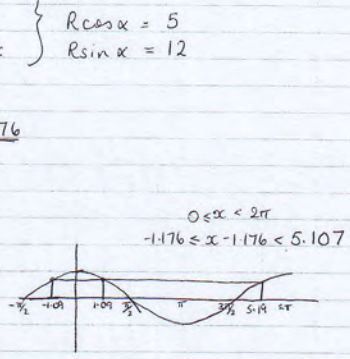 Rcosα = 5
Rsinα = 12
76
0 ≤ x < 2π
-1.176 ≤ x - 1.176 < 5.107
-π/2 -1.09 1.09 π/2 π 3π/2 5.19 2π